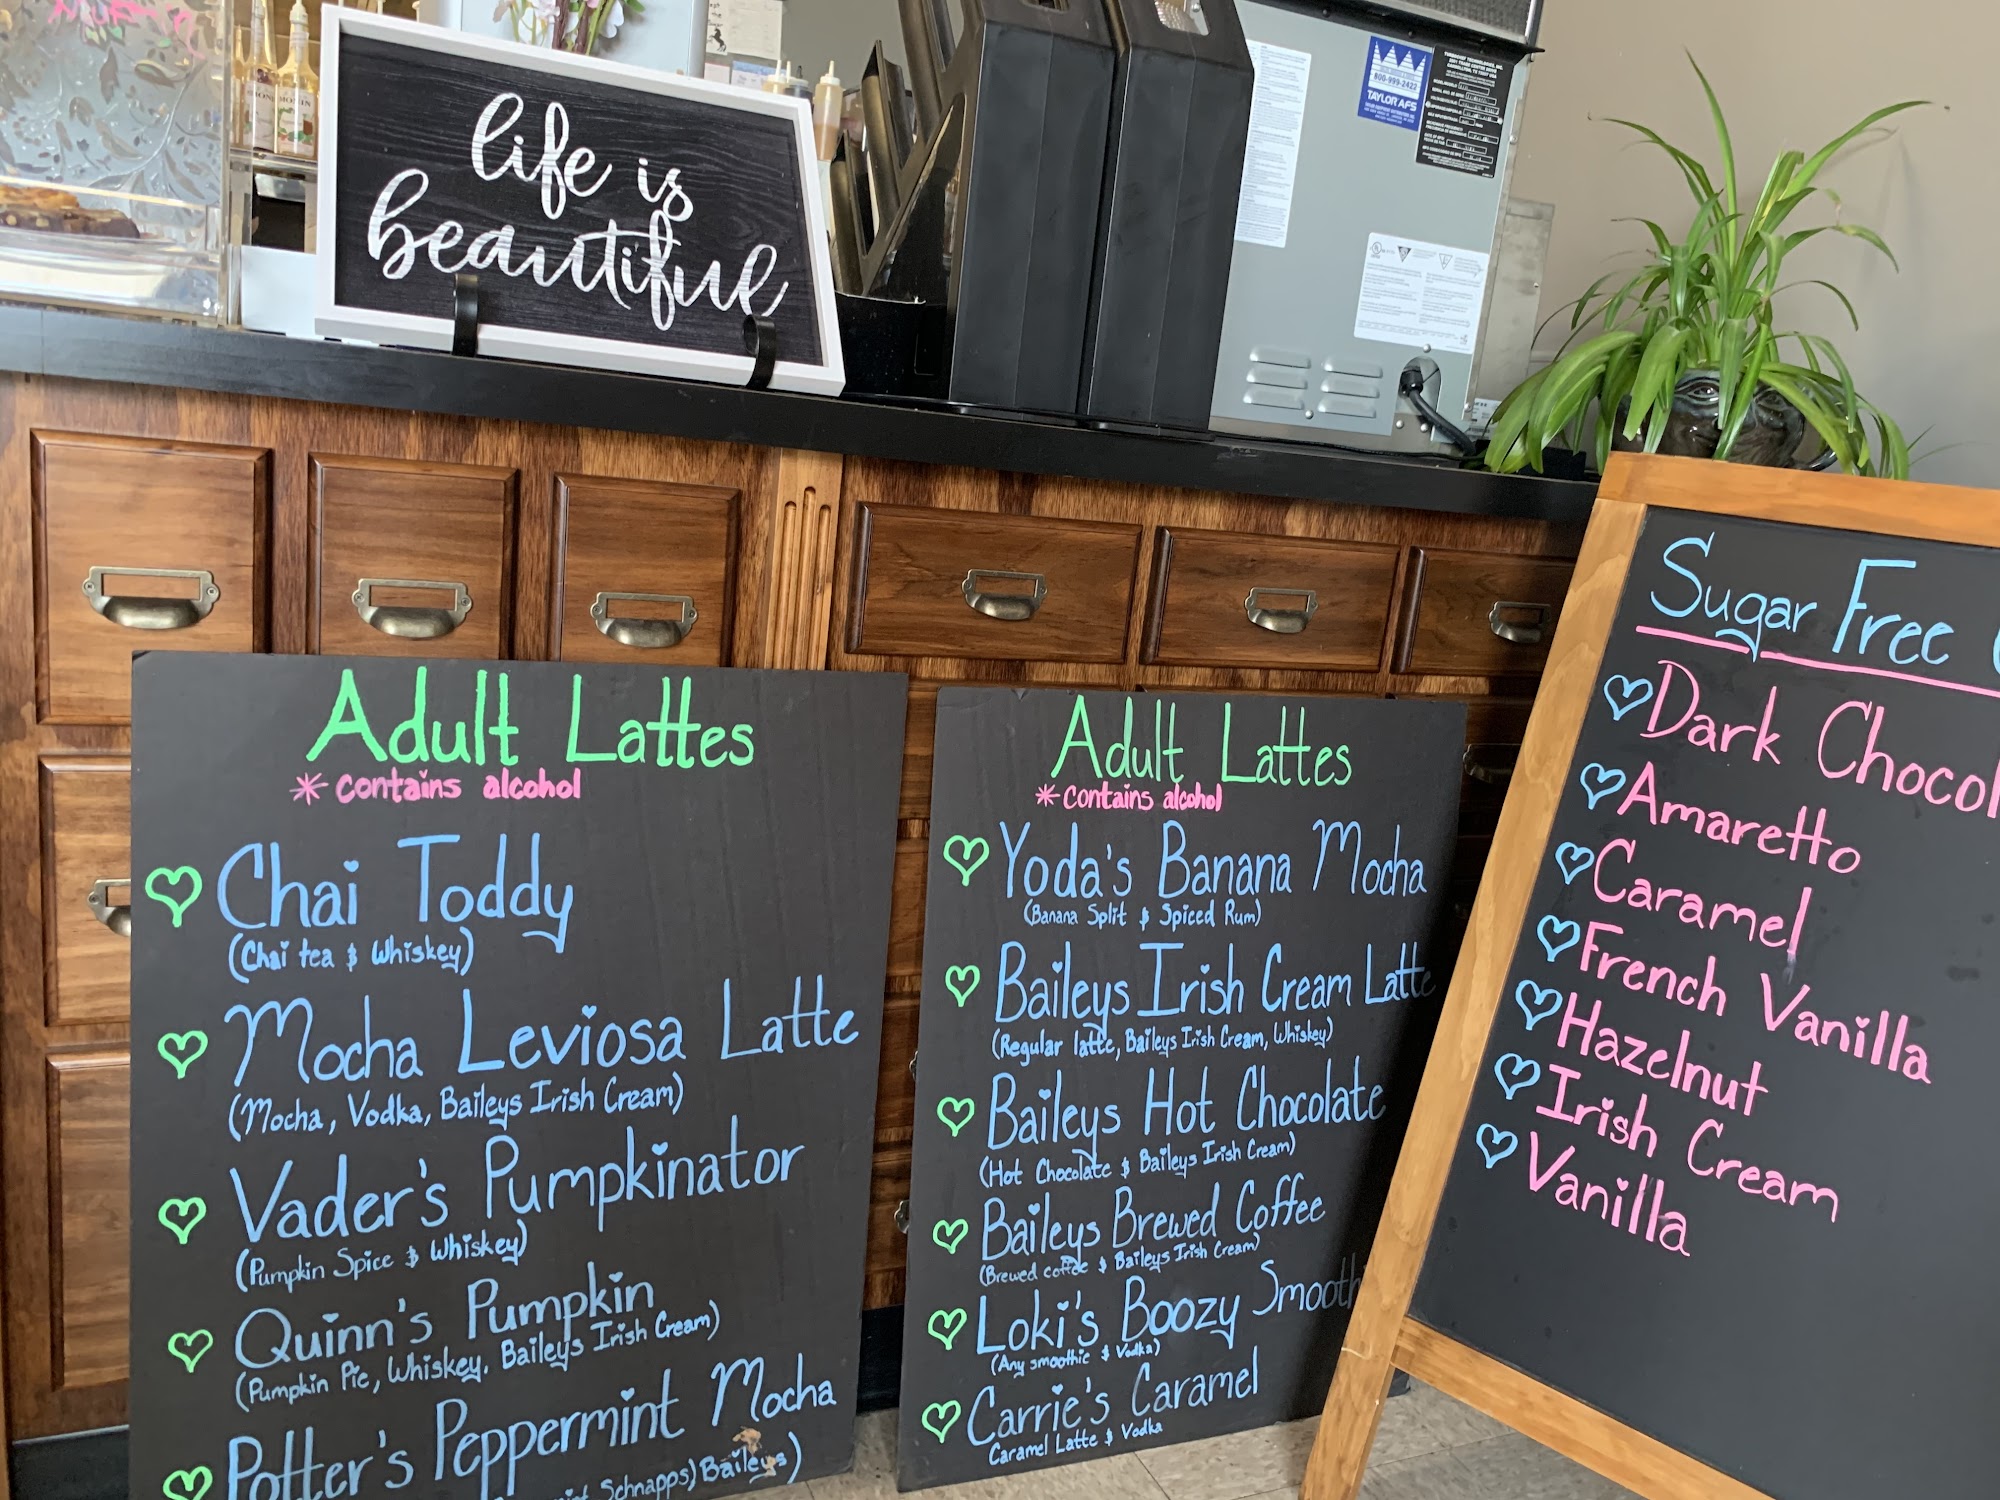 life is
beautiful
MONIN
800-999-2422
TAYLOR AFS
Adult Lattes
* contains alcohol
Chai Toddy
(Chai tea & Whiskey)
Mocha Leviosa Latte
(Mocha, Vodka, Baileys Irish Cream)
Vader's Pumpkinator
(Pumpkin Spice & Whiskey)
Quinn's Pumpkin
(Pumpkin Pie, Whiskey, Baileys Irish Cream)
Potter's Peppermint Mocha
Schnapps) Baileys)
Adult Lattes
* contains alcohol
Yoda's Banana Mocha
(Banana Split & Spiced Rum)
Baileys Irish Cream Latte
(Regular latte, Baileys Irish Cream, Whiskey)
Baileys Hot Chocolate
(Hot Chocolate & Baileys Irish Cream)
Baileys Brewed Coffee
(Brewed coffee & Baileys Irish Cream)
Loki's Boozy Smoothi
(Any smoothie & Vodka)
Carrie's Caramel
Caramel Latte & Vodka
Sugar Free
Dark Chocol
Amaretto
Caramel
French Vanilla
Hazelnut
Irish Cream
Vanilla